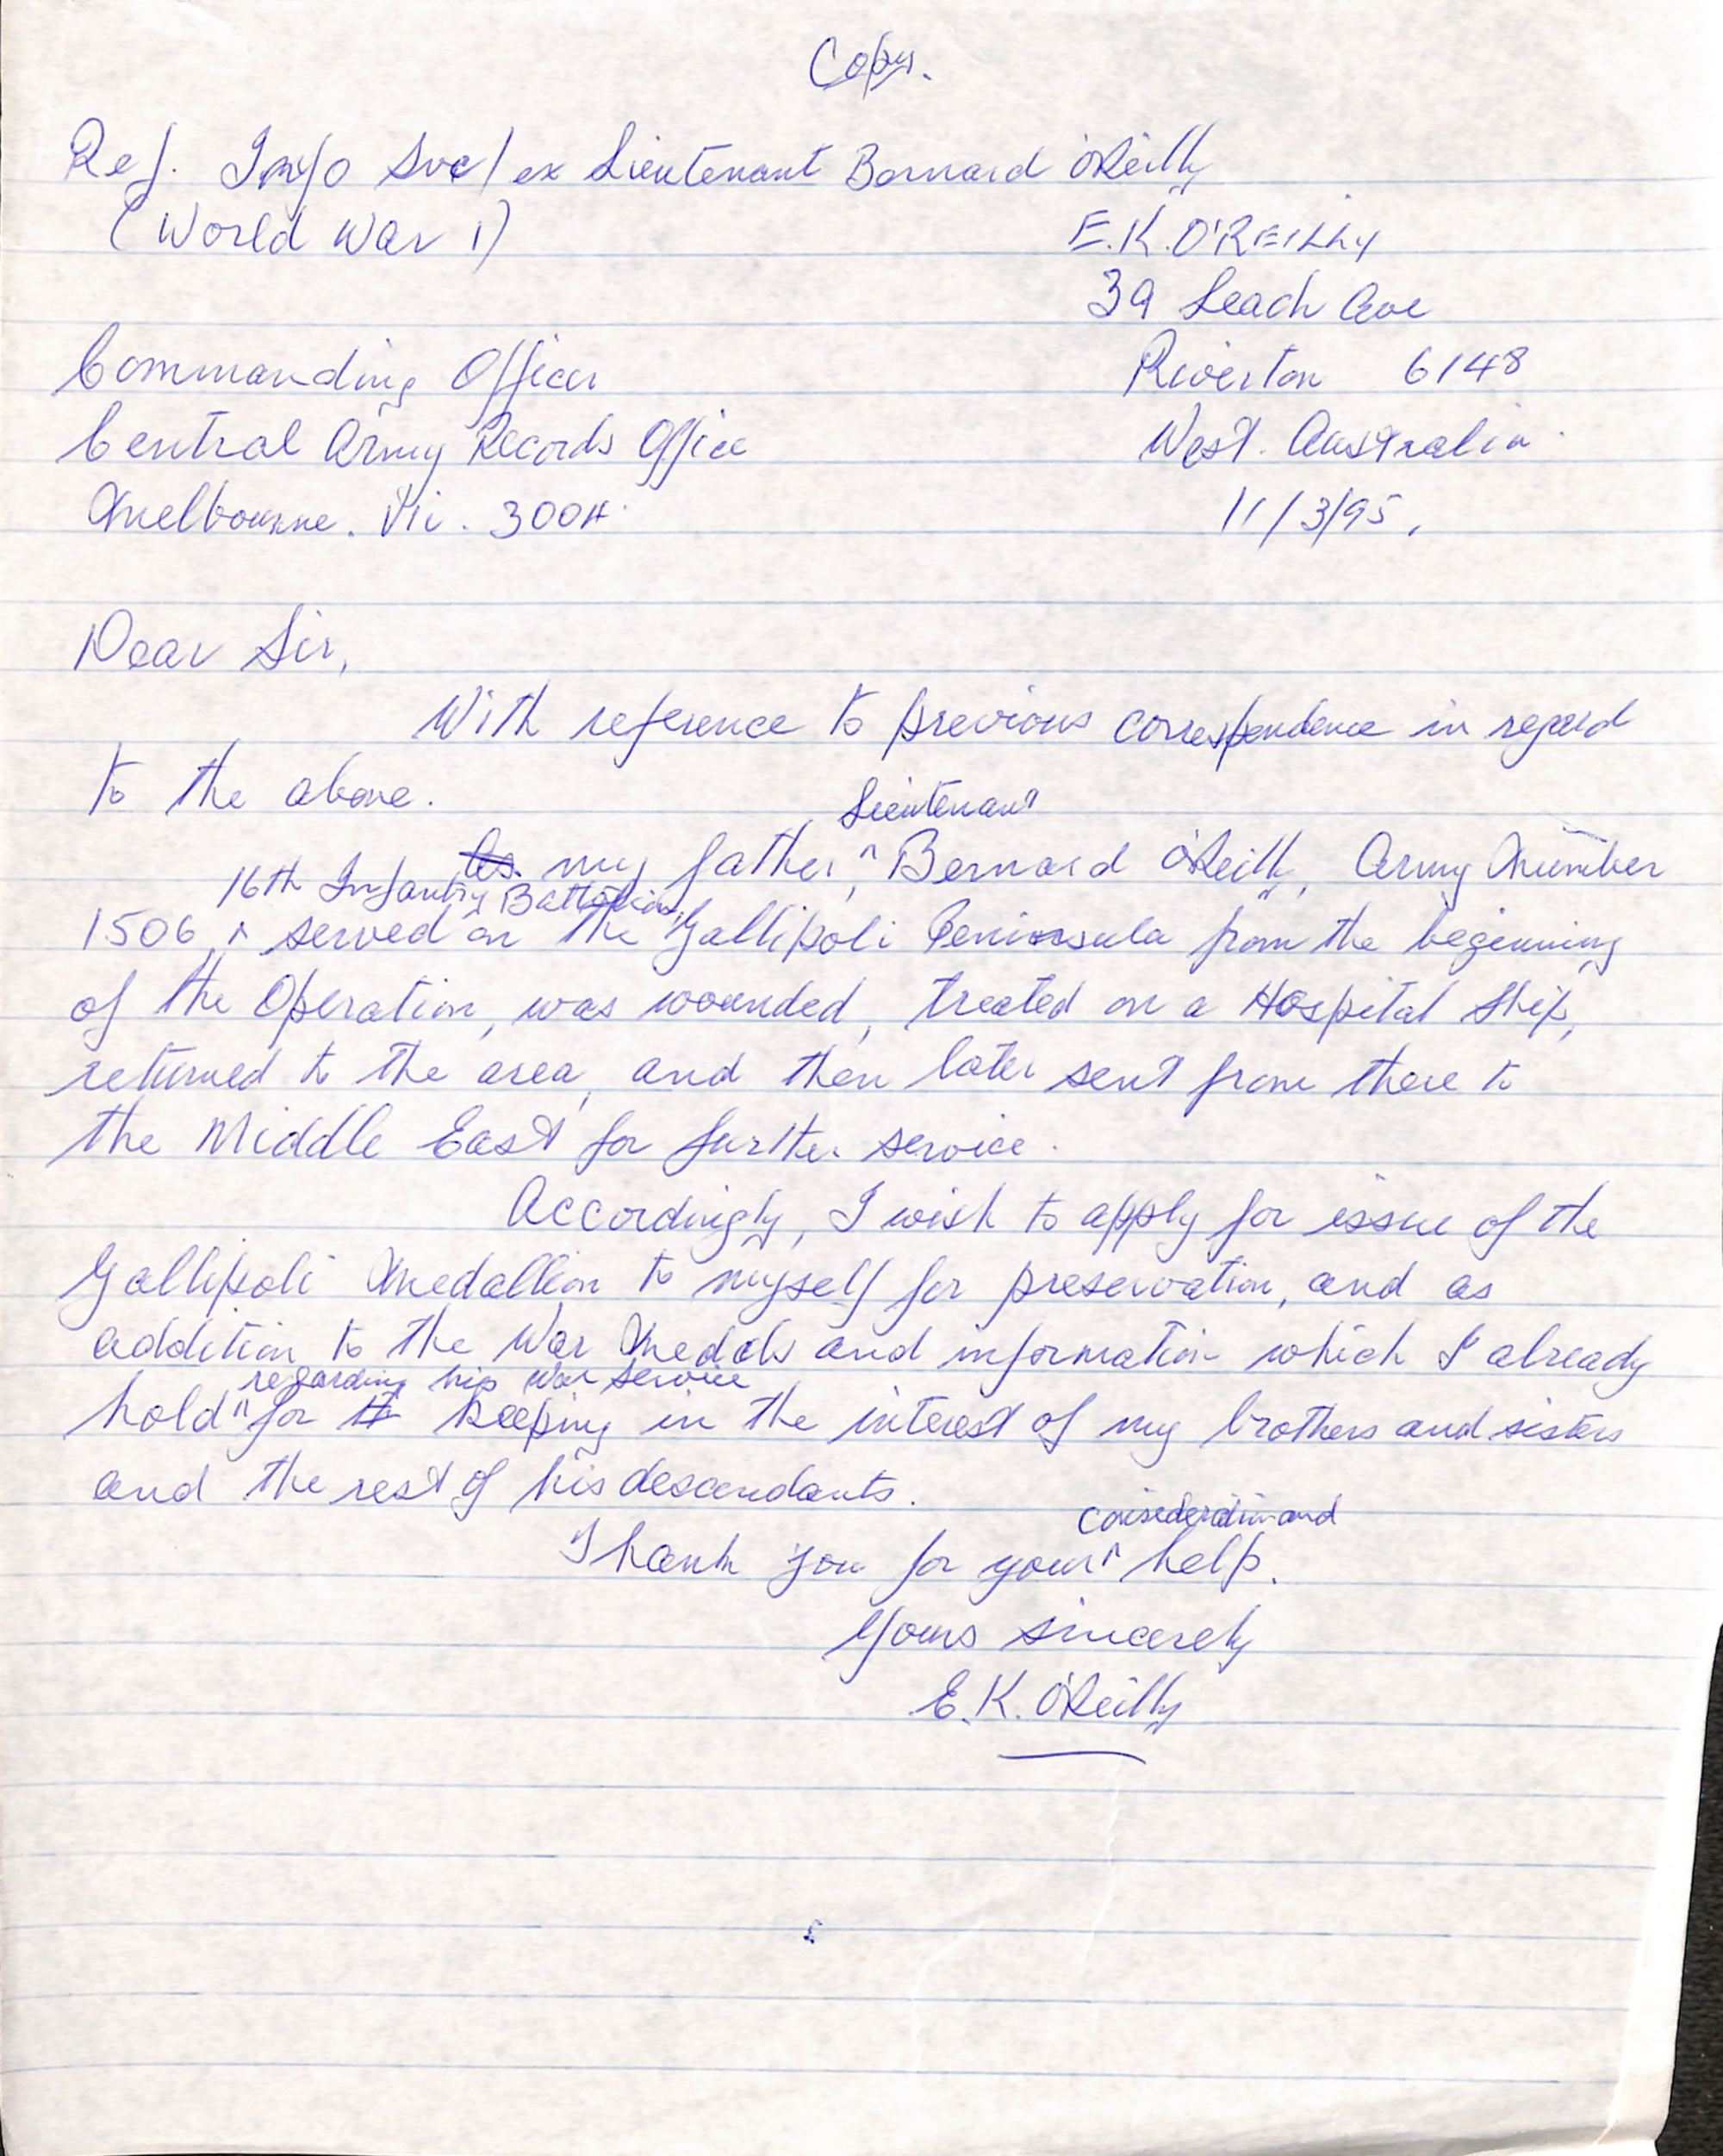 Copy.
Ref. Info Svc/ex Lieutenant Bernard O'Reilly
(World War 1)
E.K. O'REILLY
39 Leach Ave
Commanding Officer
Riverton 6148
Central Army Records Office
West. Australia.
Melbourne. Vic. 3004.
11/3/95.
Dear Sir,
With reference to previous correspondence in regard
to the above.
Lieutenant
As my father, ^ Bernard O'Reilly, Army Number
16th Infantry Battalion,
1506, ^ served on the Gallipoli Peninsula from the beginning
of the Operation, was wounded, treated on a Hospital Ship,
returned to the area, and then later sent from there to
the Middle East for further service.
Accordingly, I wish to apply for issue of the
Gallipoli Medallion to myself for preservation, and as
addition to the War Medals and information which I already
regarding his war service
hold ^ for keeping in the interest of my brothers and sisters
and the rest of his descendants.
consideration and
Thank you for your ^ help.
Yours sincerely
E.K. O'Reilly